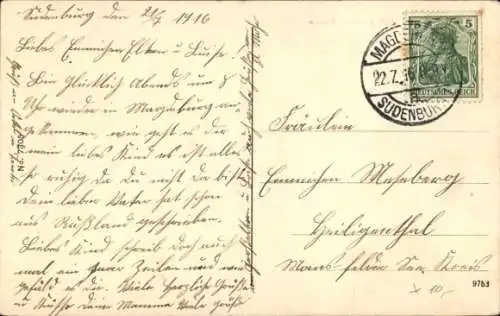 Sudenburg den 21/7 1916
Liebes Emmichen Eltern u Luise.
Bin Glücklich Abends um 8
Uhr wieder in Magdeburg an-
gekommen, wie geht es dir
mein liebes Kind es ist alles
so ruhig da du nicht da bist
dein lieber Vater hat schon
aus Rußland geschrieben.
Liebes Kind schreib doch auch
mal ein paar Zeilen und wie
gefällt es dir. Viele Herzliche Grüße
u Küsse deine Mamma Viele Grüße
MAGDE
22.7.16
SUDENBURG
5
DEUTSCHES REICH
Fräulein
Emmichen Meseberg
Heiligenthal
Mansfelder See Kreis
9763
x 10,-